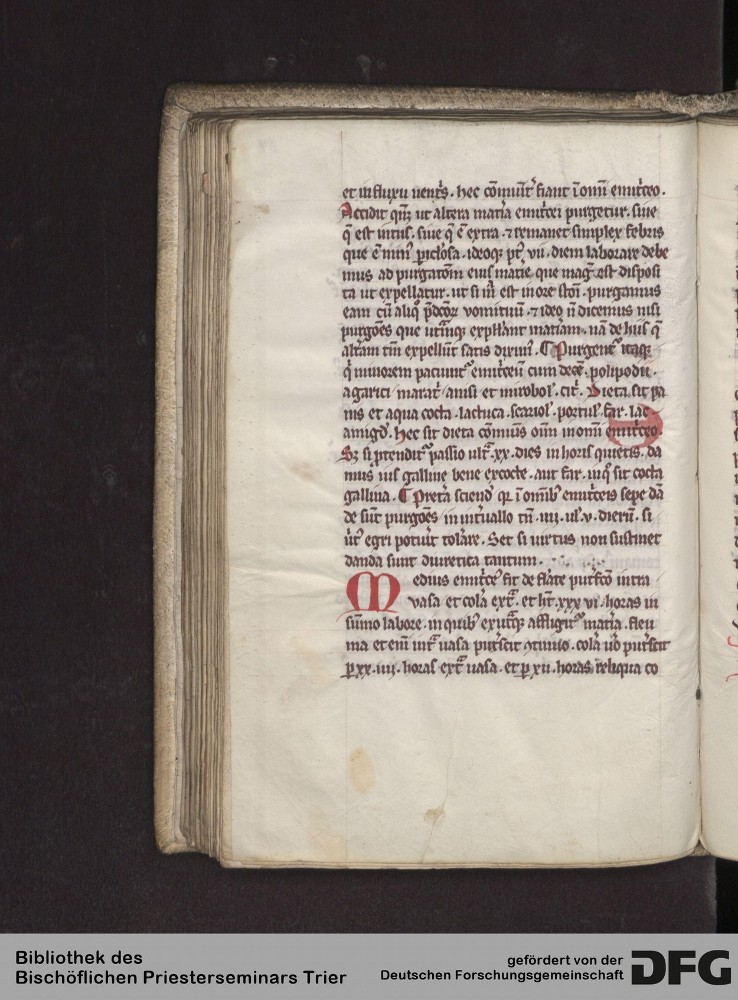 et in fluxu uentˢ. hec cõmunit̃ fiant ĩ omni emit̾ceo.
Accidit qñq̃ ut altera mat̾ia emit̾cei purgetur. siue
q̃ est intus. siue q̃ ẽ extra. ⁊ remanet simplex febris
que ẽ min᾽ ꝑiclosa. ideoq; pꝰ. vii. diem laborare debe
mus ad purgat̃oem eius mat̾ie que mag̃ est disposi
ta ut expellatur. ut si in̾ est in ore stõi. purgamus
eam cũ aliq̃ vomitiuũ. ⁊ ideo ñ dicemus nisi
purgões que utrũq; expellant mat̾iam. nã de hiis q̃
alt̾am tm̃ expellũt satis dixim᾽. ¶ Purgent᷑ itaq;
q̾ minorem paciunt᷑ emit̾ceũ cum polipodii.
agarici marat̾ anisi et mirobol᾽. cit̾. Dieta sit pa
nis et aqua cocta. lactuca. scariol᾽. portul᾽. far. lac
amigd᾽. Hec sit dieta cõmunis oĩm in omni emit̾ceo.
Sʒ si ꝓtendit᷑ passio ult̾. xx. dies in horis quietis. da
mus ius galline bene excocte. aut far. in q̾ sit cocta
gallina. ¶ Pret̾ea sciend᾽ qꝛ ĩ omĩbꝰ emit̾ceis sepe dã
de sũt purgões in int̾uallo tñ. iiij. ul᾽. v. dierũ. si
u̾t᾽ egri potu̾it tol̾are. Set si uirtus non sustinet
danda sunt diuretica tantum.
Medius emit̾ce᾽ fit de flãte put̾fcõ intra
vasa et col̾a ext̾. et ht̾. xxx vi. horas in
sũmo labore. in quibꝰ ex ut̾q; affligit᷑ mat̾ia. fleu
ma et em̃ int̾ uasa put̾scit ꝯtinuo. col̾a u̾o put̾scit
ꝑ xx. iiij. horas ext̾ uasa. et ꝑ xii. horas reliqua co
Bibliothek des
Bischöflichen Priesterseminars Trier
gefördert von der
Deutschen Forschungsgemeinschaft
DFG